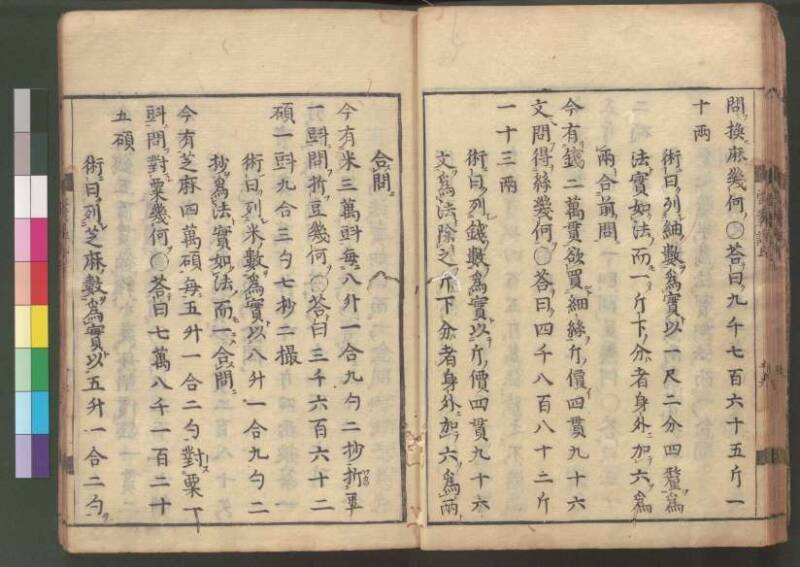 問換麻幾何〇荅曰九千七百六十五斤一
十兩
術曰列紬數爲實以一尺二分四釐爲
法實如法而一斤下分者身外加六爲
兩合前問
今有錢二萬貫欲買細絲斤價四貫九十六
文問得絲幾何〇荅曰四千八百八十二斤
一十三兩
術曰列錢數爲實以斤價四貫九十六
文爲法除之斤下分者身外加六爲兩
合問
今有米三萬㪷每八升一合九勺二抄折豆
一㪷問折豆幾何〇荅曰三千六百六十二
碩一㪷九合三勺七抄二撮
術曰列米數爲實以八升一合九勺二
抄爲法實如法而一合問
今有芝麻四萬碩每五升一合二勺對粟一
㪷問對粟幾何〇荅曰七萬八千一百二十
五碩
術曰列芝麻數爲實以五升一合二勺